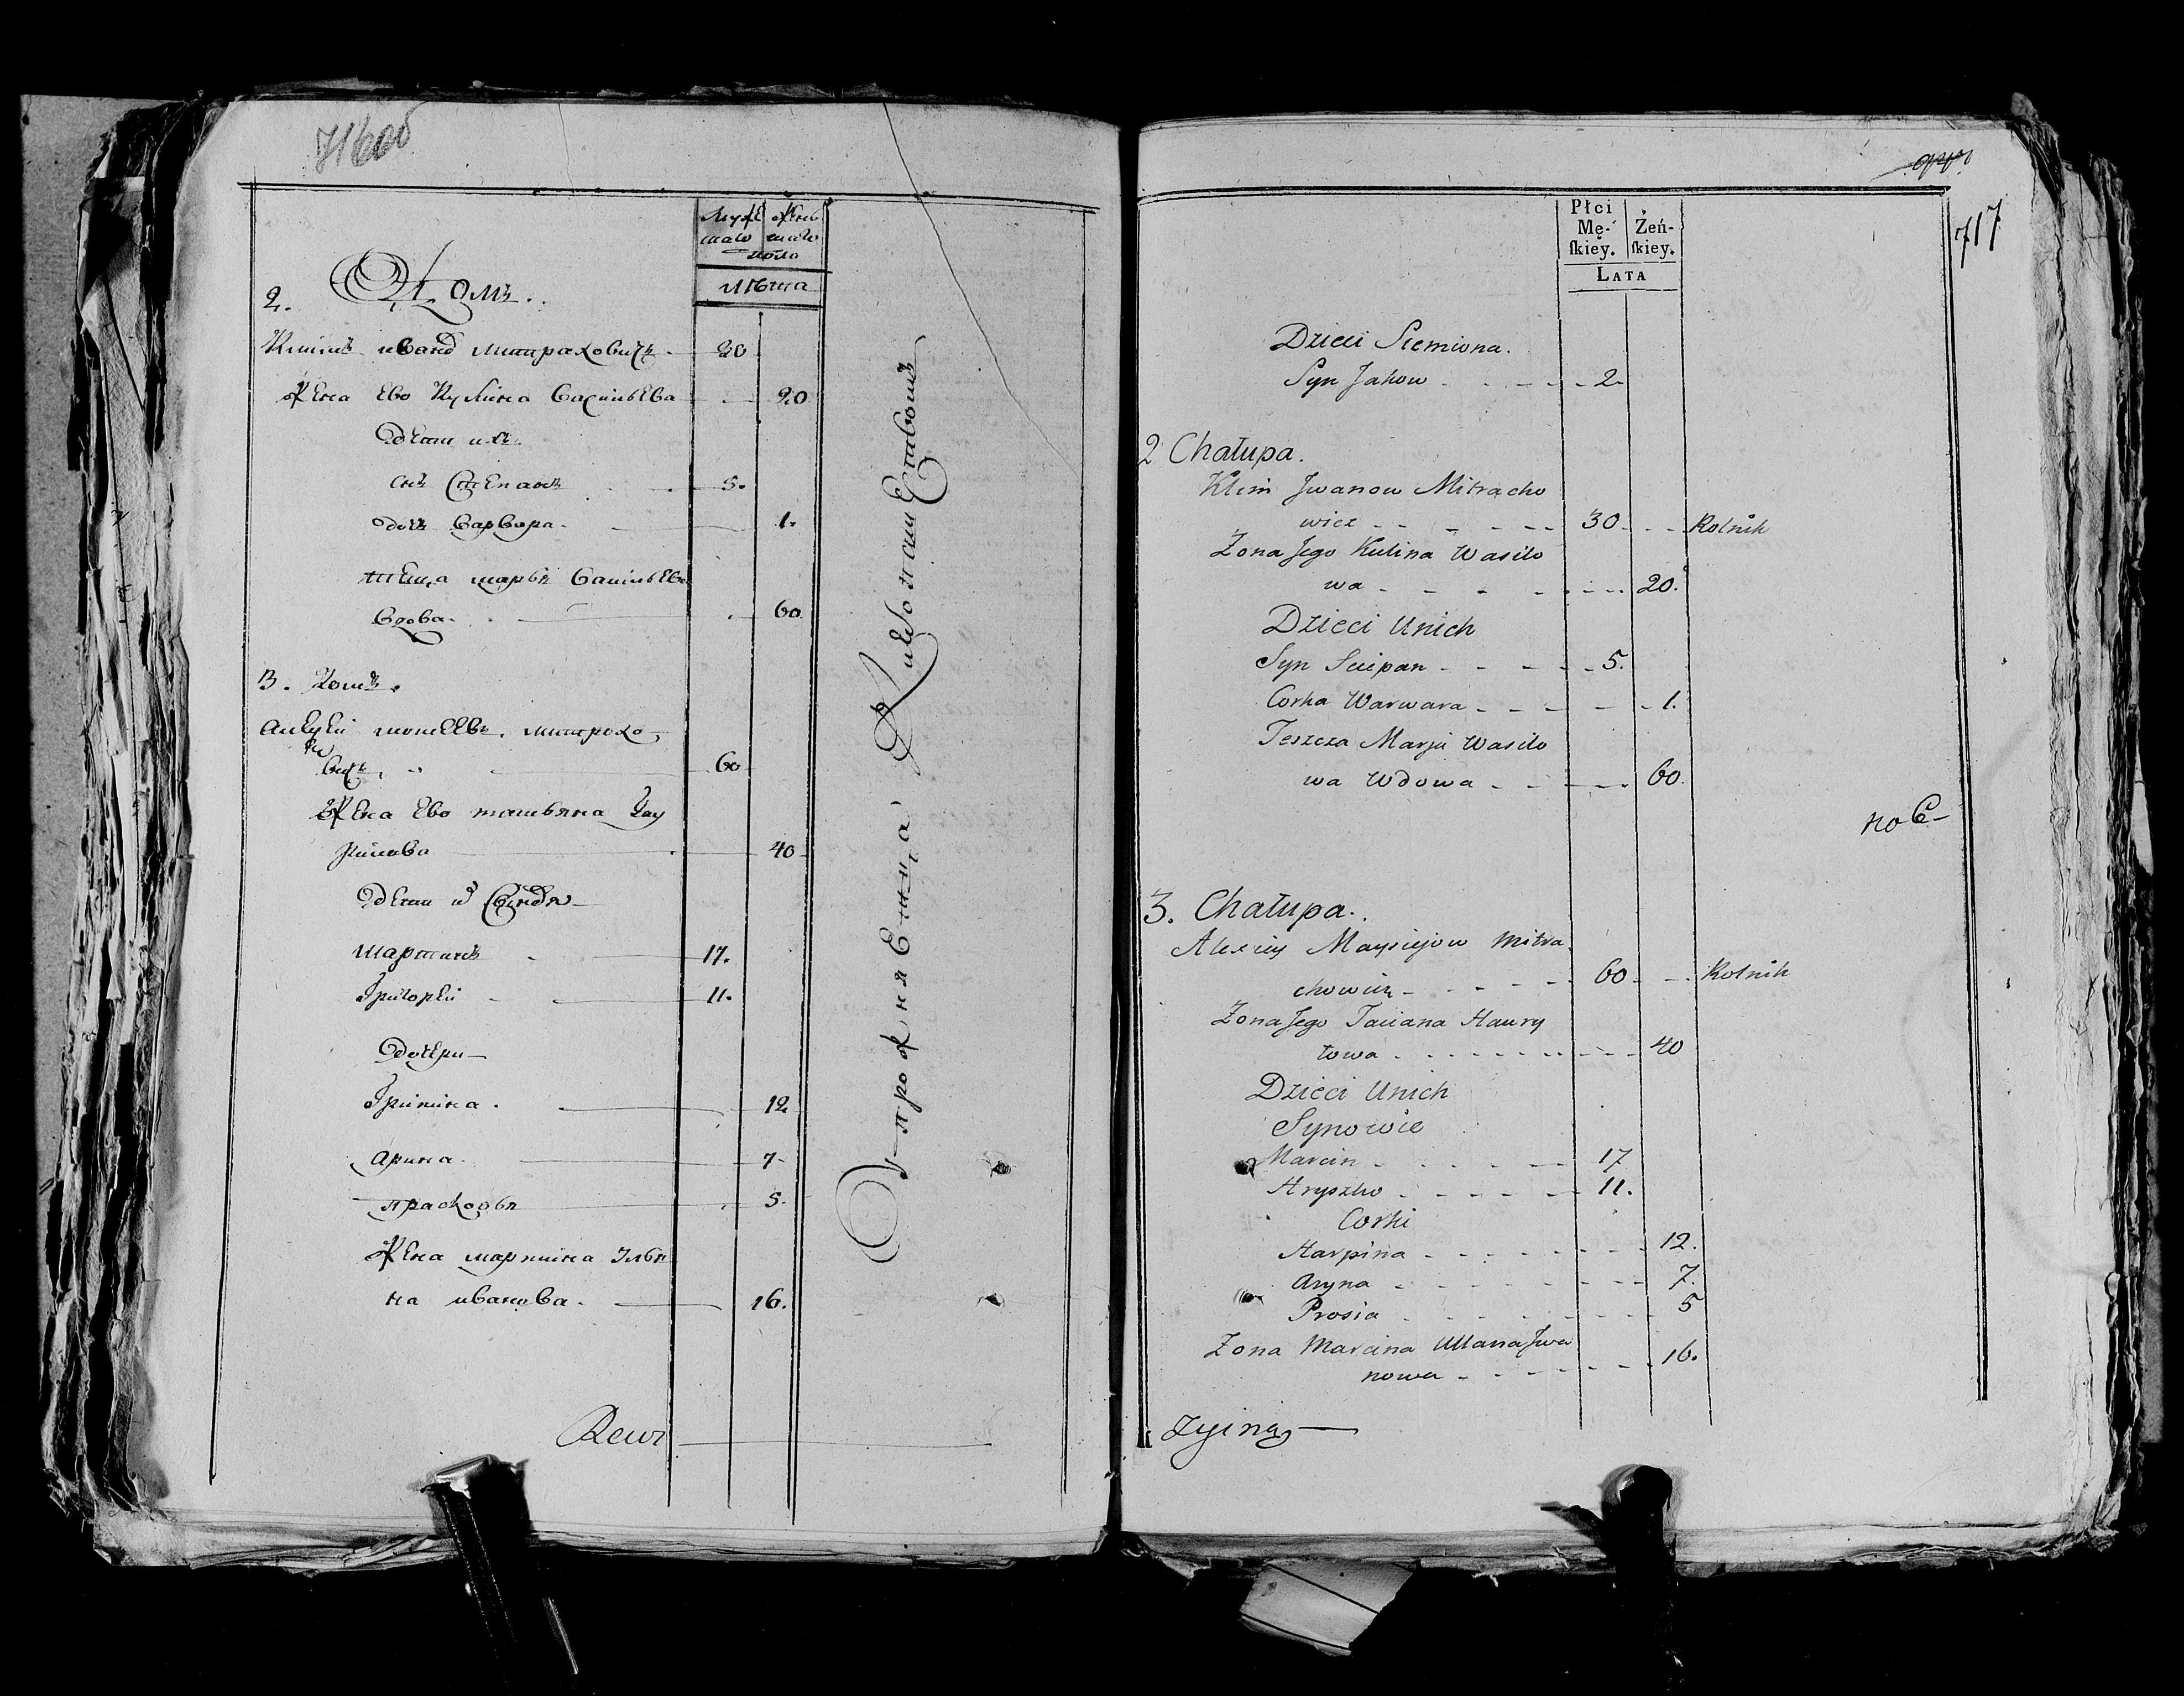 716об
Муже
скаго
Женс
каго
пола
лѣта
2. Домъ.
Климъ иванов митраховичъ 20
Жена Ево Кулина Василъева 20
дети ихъ
снъ Степанъ 5.
дочь Варвара 1.
теща марья Василъева
вдова 60
3. Домъ.
алексѣй моисеевъ митрахо
вичъ 60
Жена Ево татьяна Гау
рилова 40
дети
мартинъ 17.
Григорей 11.
дочери
Арина 7
прасковья 5.
Жена мартина Улья
на иванова 16.
Rewi
717
Płci
Mę-
skiey.
Żeń-
skiey.
LATA
Dzieci Siemiona.
Syn Jakow 2
2 Chałupa.
Klim Jwanow Mitracho
wicz 30 Rolnik
Zona Jego Kulina Wasilo
wa 20.
Dzieci Unich
Syn Sciepan 5.
Corka Warwara 1.
Teszcza Marja Wasilo
wa Wdowa 60.
3. Chałupa.
Alexiey Maysiejow Mitra
chowicz 60 Rolnik
Zona Jego Taciana Haury
łowa 40
Dzieci Unich
Synowie
Marcin 17
Hryszko 11.
Corki
Harpina 12.
Aryna 7.
Prosia 5
Zona Marcina Ullana Jwa
nowa 16.
zyiną